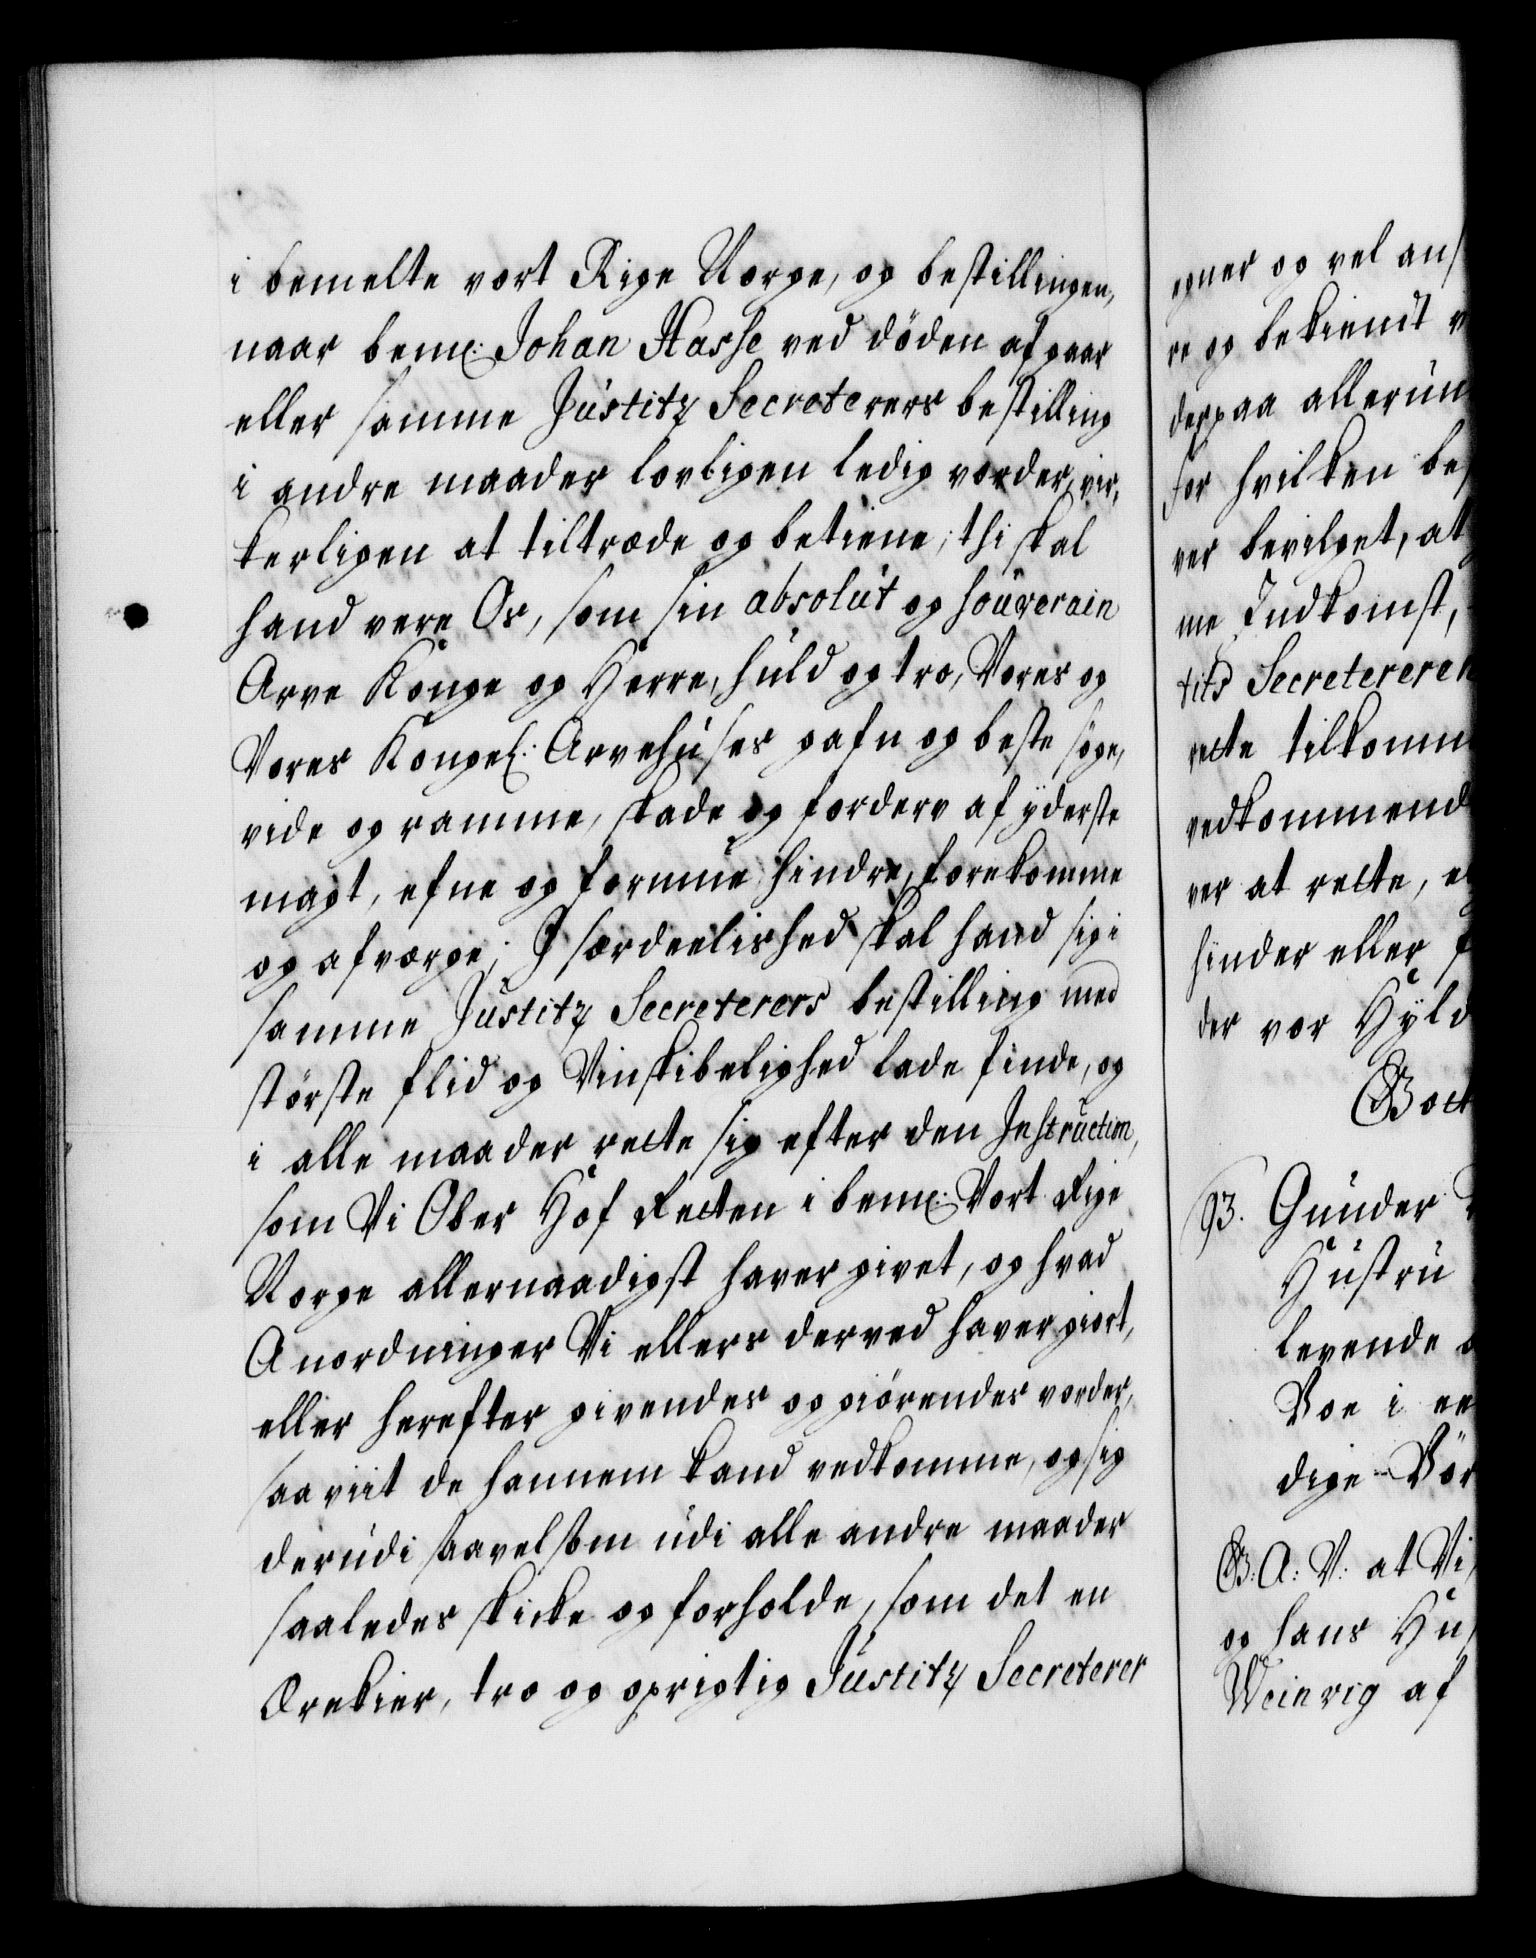 i bemelte vort Rige Norge, og bestillingen,
naar bem: Johan Hasse ved döden afgaar
eller samme Justitz Secreterers bestilling
i andre maader lovligen ledig vorder, vir,
kerligen at tiltræde og betiene; thi skal
hand vere Os, som sin absolut og souverain
Arve Konge og Herre, huld og tro, Vores og
Vores Kongel: Arvehuses gafn og beste söge,
vide og ramme, skade og forderv af yderste
magt, efne og formue hindre, forekomme
og afværge; J særdeelished skal hand sig i
samme Justitz Secreterers bestilling med
störste flid og Vinskibelighed lade finde, og
i alle maader rette sig efter den Instruction,
som Vi Ober Hof Retten i bem: Vort Rige
Norge allernaadigst haver givet, og hvad
Anordninger Vi ellers derved haver giort,
eller herefter givendes og giörendes vorder,
saa viit de hannem kand vedkomme, og sig
derudi saavelsom udi alle andre maader
saaledes skicke og forholde, som det en
Ærekier, tro og oprigtig Justitz Secreterer
egner og vel ans
re og bekiendt v
derpaa allerun
for hvilken bes
ver bevilget, at
me Indkomst,
tits Secreterere
rette tilkomm
vedkommend
ver at rette, e
hinder eller f
der vor Hyld
93. Gunder
Hustru
levende
Boe i ee
dige Bör
G: A: V: at Vi,
og hans Hus
Weinvig af